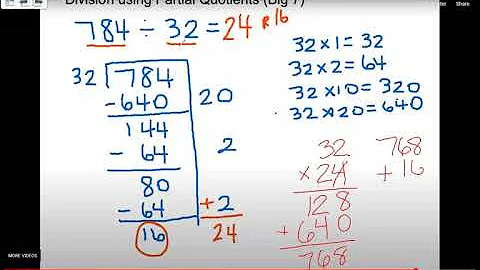 Division using Partial Quotients (Big 7)
784 ÷ 32 = 24 R16
32 784
-640 20
144
- 64 2
80
- 64 +2
16 24
32 x 1 = 32
32 x 2 = 64
32 x 10 = 320
32 x 20 = 640
32
x 24
128
+640
768
768
+ 16
MORE VIDEOS